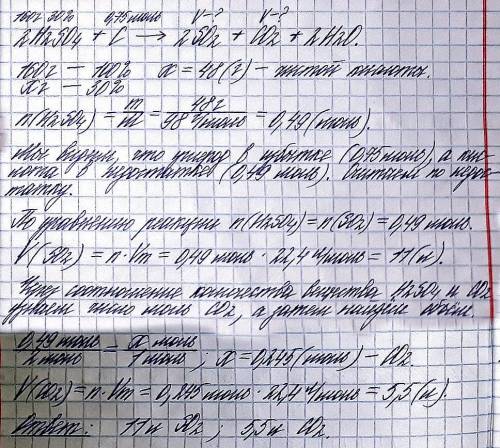 160г 30% 0,75 моль V-? V-?
2H2SO4 + C → 2SO2 + CO2 + 2H2O.
160г — 100% x = 48(г) – чистой кислоты.
xг — 30%
n(H2SO4) = m/M = 48г/98г/моль = 0,49 (моль).
Мы видим, что углерод в избытке (0,75 моль), а кис-
лота в недостатке (0,49 моль). Считаем по недос-
татку.
По уравнению реакции n(H2SO4) = n(SO2) = 0,49 моль.
V(SO2) = n · Vm = 0,49 моль · 22,4 л/моль = 11 (л).
Через соотношение количества вещества H2SO4 и CO2
узнаем число моль CO2, а затем найдём объём.
0,49 моль/2 моль = x моль/1 моль ; x = 0,245 (моль) – CO2.
V(CO2) = n · Vm = 0,245 моль · 22,4 л/моль = 5,5 (л).
Ответ: 11 л SO2 ; 5,5 л CO2.